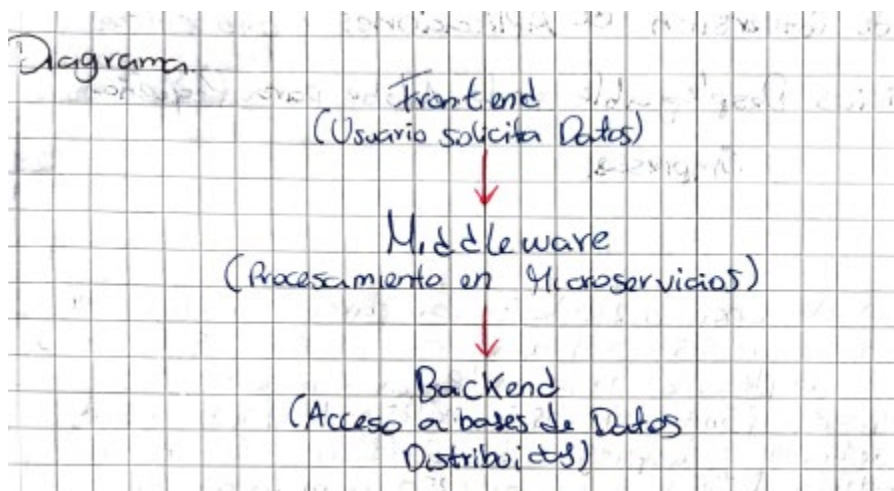 Diagrama
Frontend
(Usuario solicita Datos)
Middleware
(Procesamiento en Microservicios)
Backend
(Acceso a bases de Datos
Distribuidos)